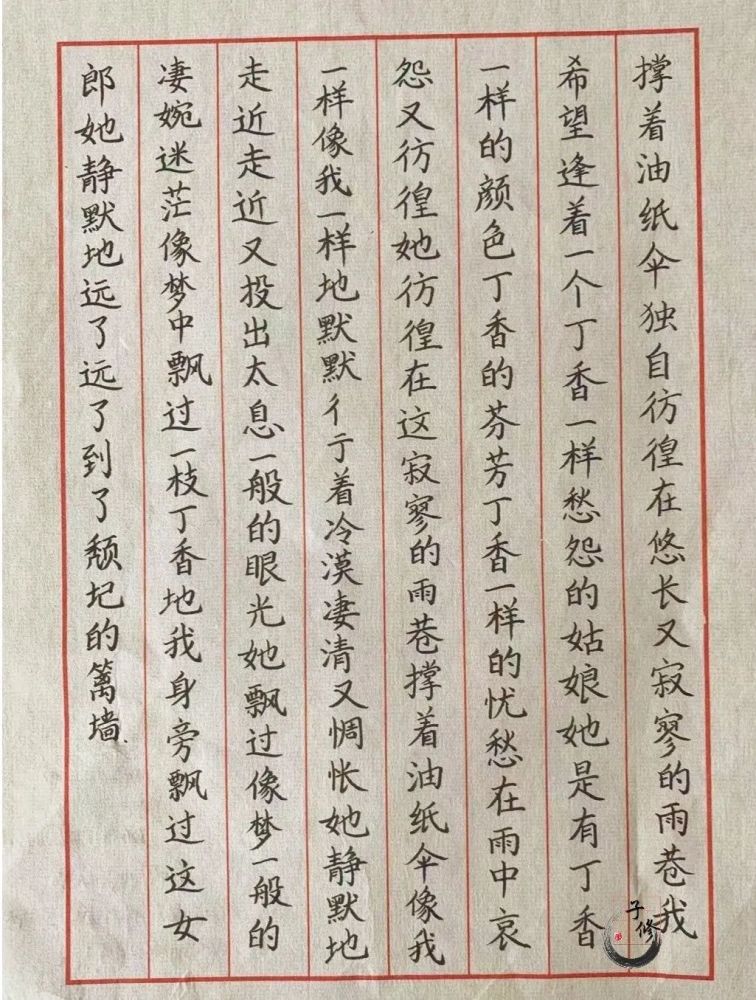 撑着油纸伞独自彷徨在悠长又寂寥的雨巷我
希望逢着一个丁香一样愁怨的姑娘她是有丁香
一样的颜色丁香的芬芳丁香一样的忧愁在雨中哀
怨又彷徨她彷徨在这寂寥的雨巷撑着油纸伞像我
一样像我一样地默默彳亍着冷漠凄清又惆怅她静默地
走近走近又投出太息一般的眼光她飘过像梦一般的
凄婉迷茫像梦中飘过一枝丁香地我身旁飘过这女
郎她静默地远了远了到了颓圮的篱墙
子修